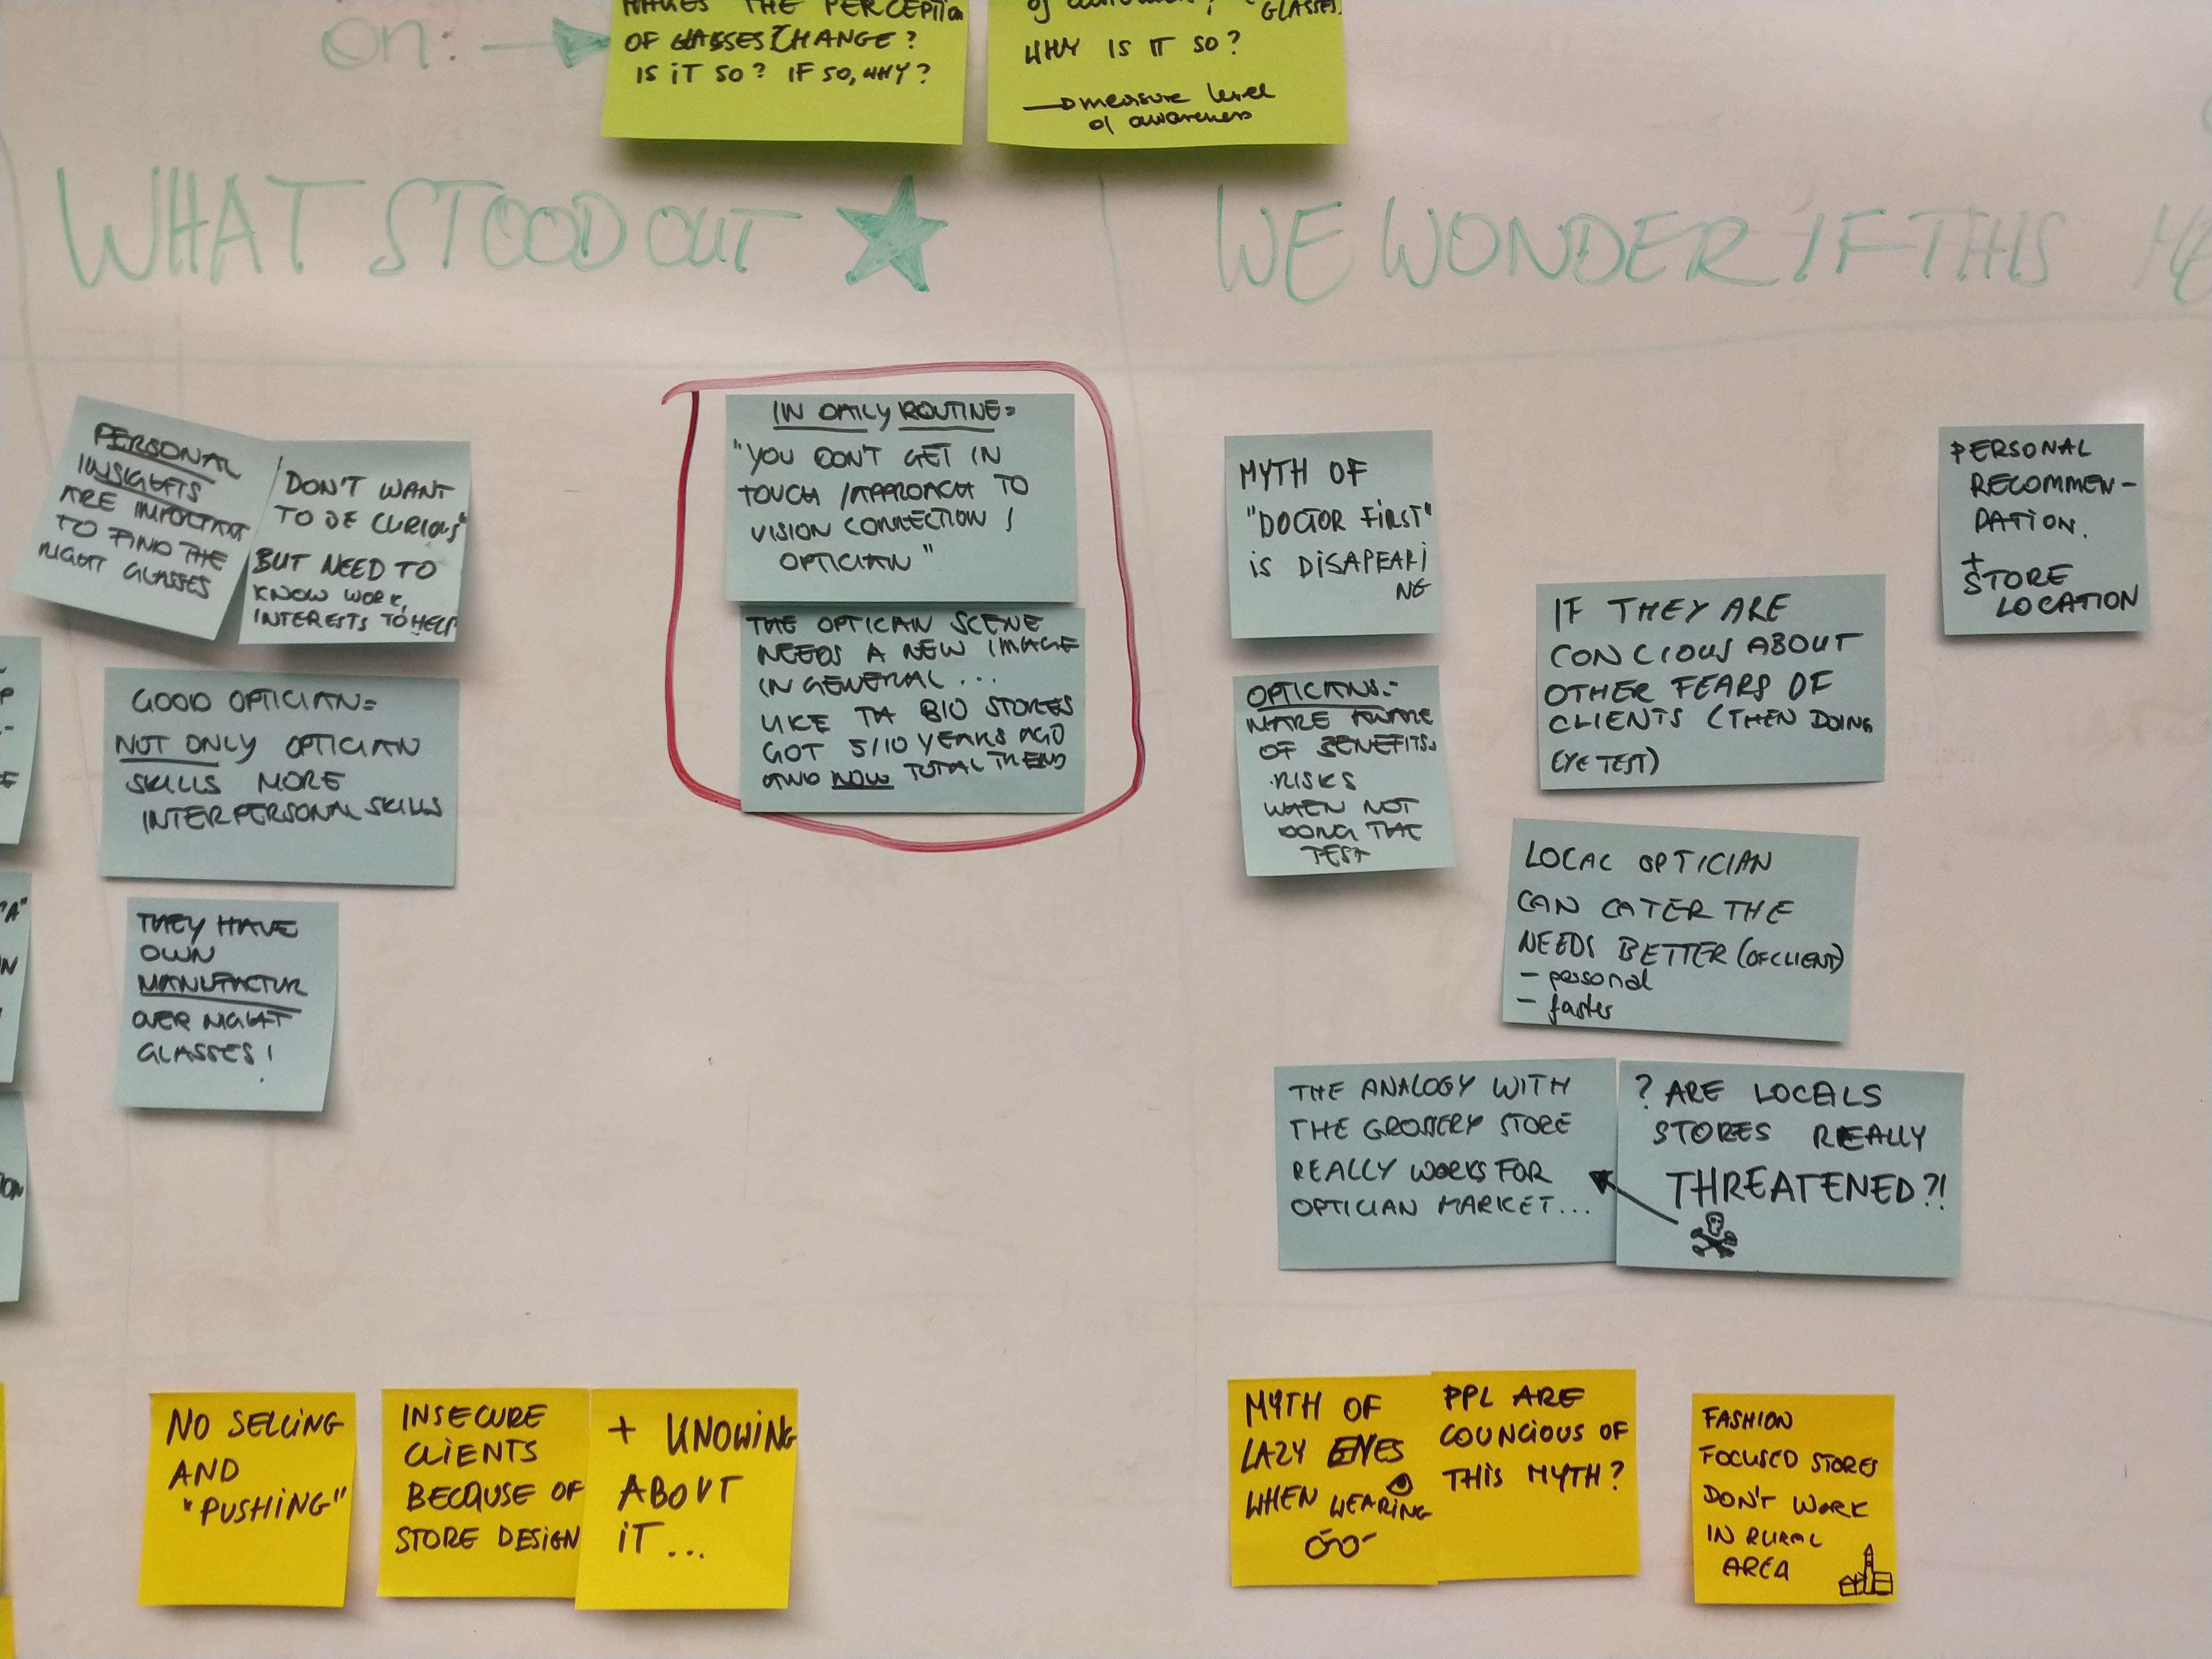 on:
THE PERCEPTION
OF GLASSES CHANGE?
IS IT SO? IF SO, WHY?
GLASSES.
WHY IS IT SO?
measure level
of awareness
WHAT STOOD OUT
WE WONDER IF THIS
PERSONAL
INSIGHTS
ARE IMPORTANT
TO FIND THE
RIGHT GLASSES
DON'T WANT
TO BE CURIOUS"
BUT NEED TO
KNOW WORK,
INTERESTS TO HELP
GOOD OPTICIAN=
NOT ONLY OPTICIAN
SKILLS MORE
INTERPERSONAL SKILLS
THEY HAVE
OWN
MANUFACTUR
OVER NIGHT
GLASSES!
IN DAILY ROUTINE=
"YOU DON'T GET IN
TOUCH /APPROACH TO
VISION CONNECTION /
OPTICIAN"
THE OPTICAN SCENE
NEEDS A NEW IMAGE
IN GENERAL...
LIKE BIO STORES
GOT 5/10 YEARS AGO
AND NOW TOTAL TREND
MYTH OF
"DOCTOR FIRST"
IS DISAPEARI
NG
OPTICIANS-
AWARE
OF BENEFITS.
RISKS
WHEN NOT
DOING THE
TEST
IF THEY ARE
CONCIOUS ABOUT
OTHER FEARS OF
CLIENTS (THEN DOING
EYE TEST)
PERSONAL
RECOMMEN-
DATION.
+
STORE
LOCATION
LOCAL OPTICIAN
CAN CATER THE
NEEDS BETTER (OF CLIENT)
- personal
- faster
THE ANALOGY WITH
THE GROSSERY STORE
REALLY WORKS FOR
OPTICIAN MARKET...
? ARE LOCALS
STORES REALLY
THREATENED?!
NO SELLING
AND
"PUSHING"
INSECURE
CLIENTS
BECAUSE OF
STORE DESIGN
+ KNOWING
ABOUT
IT...
MYTH OF
LAZY EYES
WHEN WEARING
PPL ARE
COUNCIOUS OF
THIS MYTH?
FASHION
FOCUSED STORES
DON'T WORK
IN RURAL
AREA